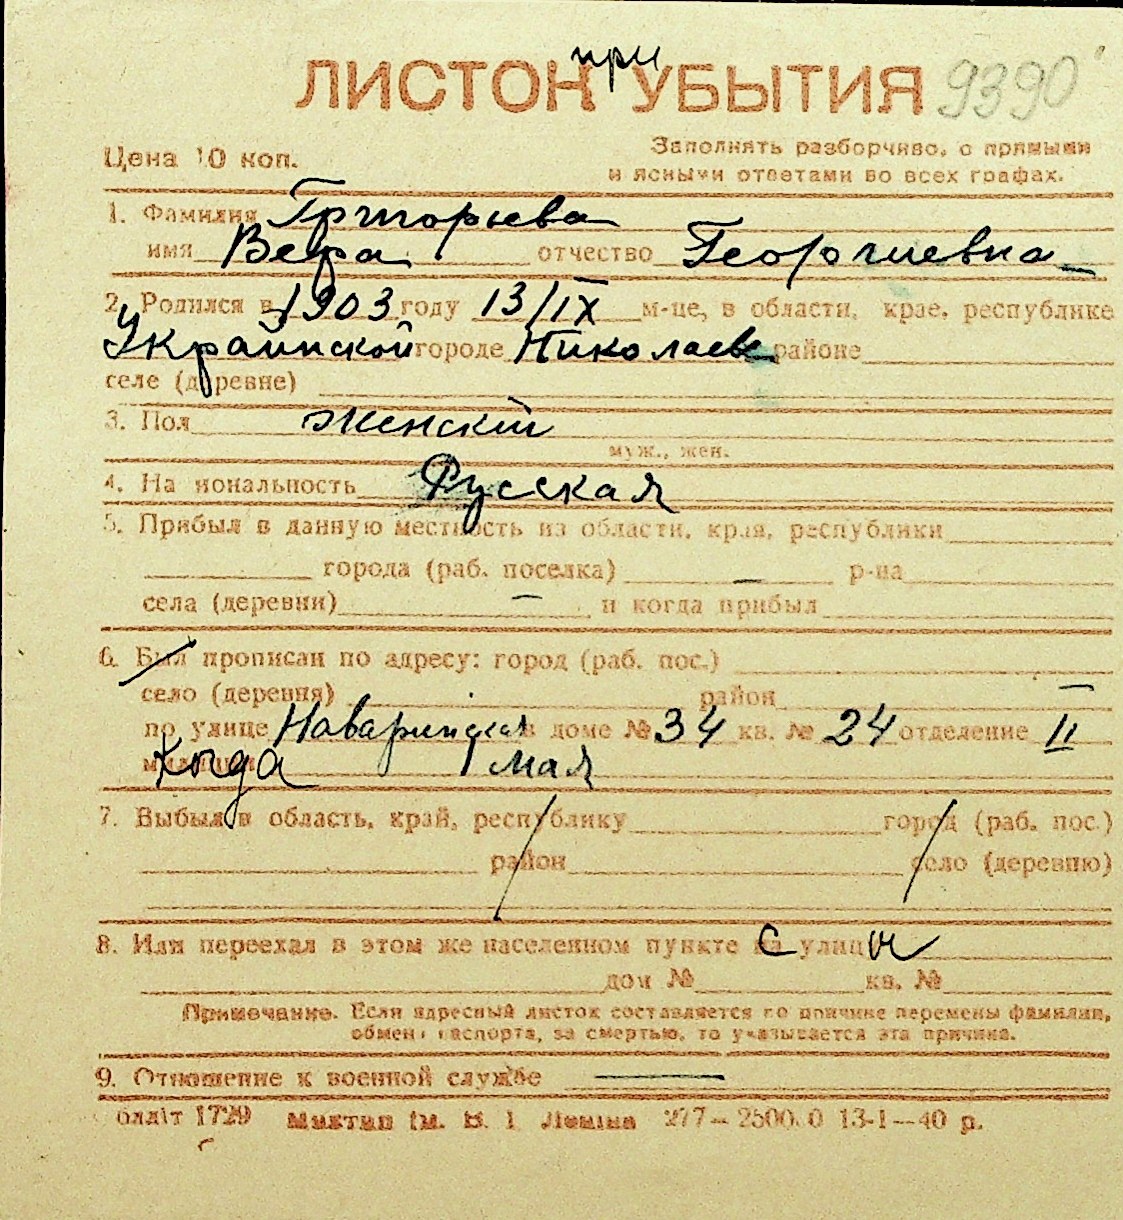 при
ЛИСТОК УБЫТИЯ 9390
Цена 10 коп.
Заполнять разборчиво, с прямыми
и ясными ответами во всех графах.
1. Фамилия Григорьева
имя Вера отчество Георгиевна
2. Родился в 1903 году 13/IX м-це, в области, крае, республике
Украинской городе Николаев районе
селе (деревне)
3. Пол женский
муж., жен.
4. Национальность Русская
5. Прибыл в данную местность из области, края, республики
города (раб. поселка) — р-на
села (деревни) — и когда прибыл
6. Был прописан по адресу: город (раб. пос.)
село (деревня) район
по улице Наваринская в доме № 34 кв. № 24 отделение II
милиции Когда 1 мая
7. Выбыл в область, край, республику город (раб. пос.)
район село (деревню)
8. Или переехал в этом же населенном пункте на с улицы
дом № кв. №
Примечание. Если адресный листок составляется по причине перемены фамилии,
обмена паспорта, за смертью, то указывается эта причина.
9. Отношение к военной службе —
1729 ім. В. І. Леніна 277— 13-1—40 р.